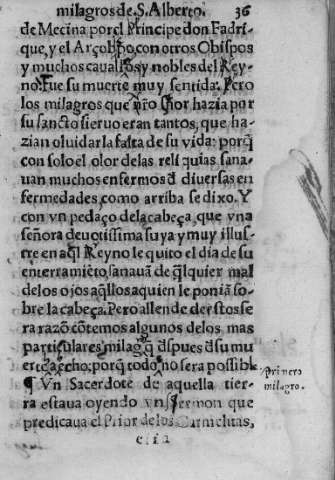 milagros de S. Alberto. 36
de Mecina por el Principe don Fadri-
que, y el Arçobpo, con otros Obispos
y muchos cauallos, y nobles del Rey-
no. Fue su muerte muy sentida. Pero
los milagros que nr̃o Señor hazia por
su sancto sieruo eran tantos, que ha-
zian oluidar la falta de su vida: porq̃
con solo el olor de las reliquias sana-
uan muchos enfermos d̃ diuersas en-
fermedades, como arriba se dixo. Y
con vn pedaço de la cabeça, que vna
señora deuotissima suya y muy illus-
tre en aq̃l Reyno le quito el dia de su
enterramiẽto, sanauã de q̃lquier mal
de los ojos aq̃llos a quien le poniã so-
bre la cabeça. Pero allende destos se
ra razõ cõtemos algunos de los mas
particulares milag̃ q̃ dspues d̃ su mu
erte hecho: porq̃ todo no sera possibl
¶ Vn Sacerdote de aquella tier-
ra estaua oyendo vn sermon que
predicaua el Prior de los Carmelitas,
Primero
milagro.